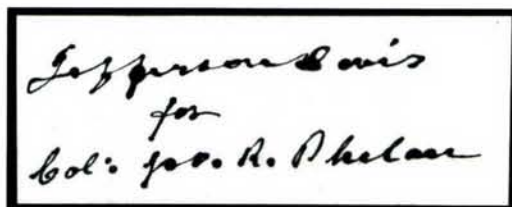 Jefferson Davis
for
Col: Jno. R. Phelan